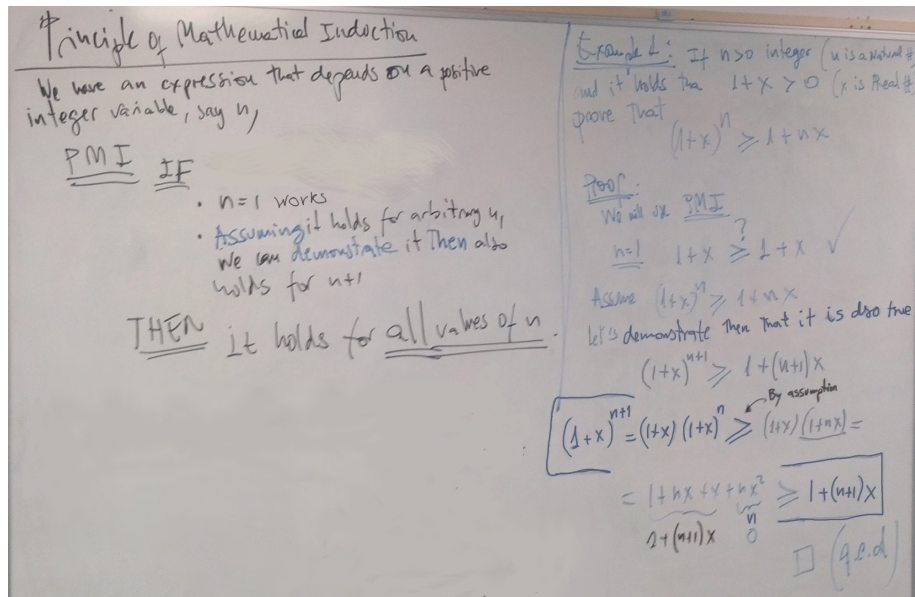 Principle of Mathematical Induction
We have an expression that depends on a positive
integer variable, say n,
PMI IF
• n=1 works
• Assuming it holds for arbitrary n,
we can demonstrate it Then also
holds for n+1
THEN it holds for all values of n.
Example 1: If n>0 integer (n is a Natural #)
and it holds tha 1+x>0 (x is Real #)
prove That
(1+x)^n ⩾ 1+nx
Proof:
We will use PMI
n=1 1+x ⩾? 1+x ✓
Assume (1+x)^n ⩾ 1+nx
Let's demonstrate Then That it is also true
(1+x)^{n+1} ⩾ 1+(n+1)x
By assumption
(1+x)^{n+1} = (1+x)(1+x)^n ⩾ (1+x)(1+nx) =
= 1+nx+x+nx² ⩾ 1+(n+1)x
1+(n+1)x 0
□ (q.e.d)